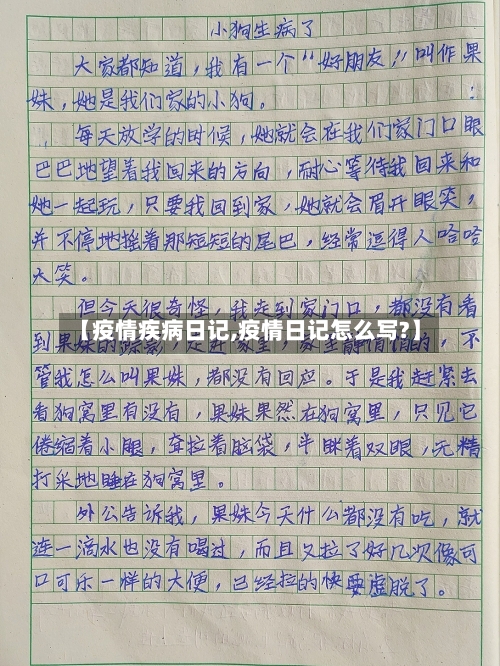 小狗生病了
大家都知道，我有一个“好朋友”叫作果
妹，她是我们家的小狗。
每天放学的时候，她就会在我们家门口眼
巴巴地望着我回来的方向，耐心等待我回来和
她一起玩，只要我回到家，她就会眉开眼笑，
并不停地摇着那短短的尾巴，经常逗得人哈哈
大笑。
但今天很奇怪，我走到家门口，都没有看
【疫情疾病日记,疫情日记怎么写?】
到果妹的踪影，走进家里，家里静悄悄的，不
管我怎么叫果妹，都没有回应。于是我赶紧去
看狗窝里有没有，果妹果然在狗窝里，只见它
倦缩着小腿，耷拉着脑袋，半眯着双眼，无精
打采地睡在狗窝里。
外公告诉我，果妹今天什么都没有吃，就
连一滴水也没有喝过，而且又拉了好几次像可
口可乐一样的大便，已经拉的快要虚脱了。